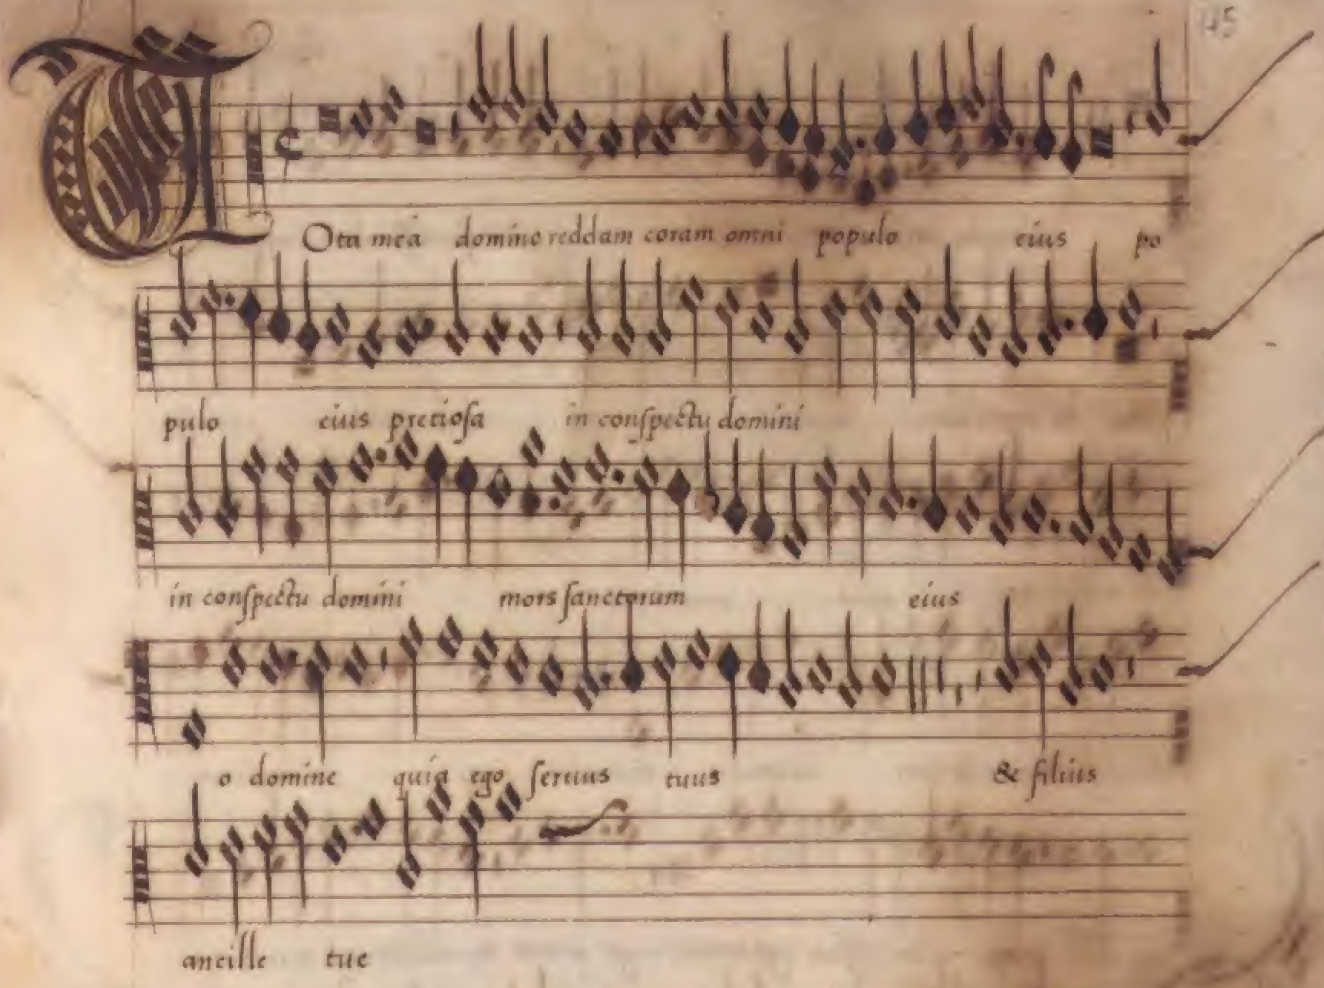 145
VOta mea domino reddam coram omni populo eius po
pulo eius pretiosa in conſpectu domini
in conſpectu domini mors ſanctorum eius
o domine quia ego ſeruus tuus & filius
ancille tue